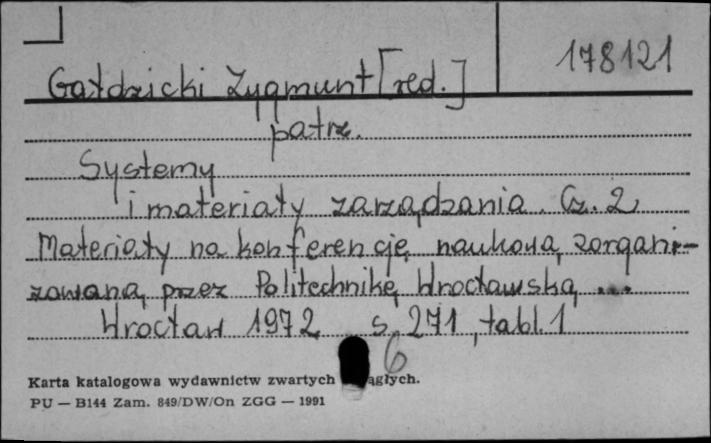 178121
Gałdzicki Zygmunt [red.]
patrz.
Systemy
i materiały zarządzania. Cz. 2
Materiały na konferencję naukową zorgani-
zowaną przez Politechnikę Wrocławską ...
Wrocław 1972 s. 271, tabl. 1
6
Karta katalogowa wydawnictw zwartych
PU — B144 Zam. 849/DW/On ZGG — 1991